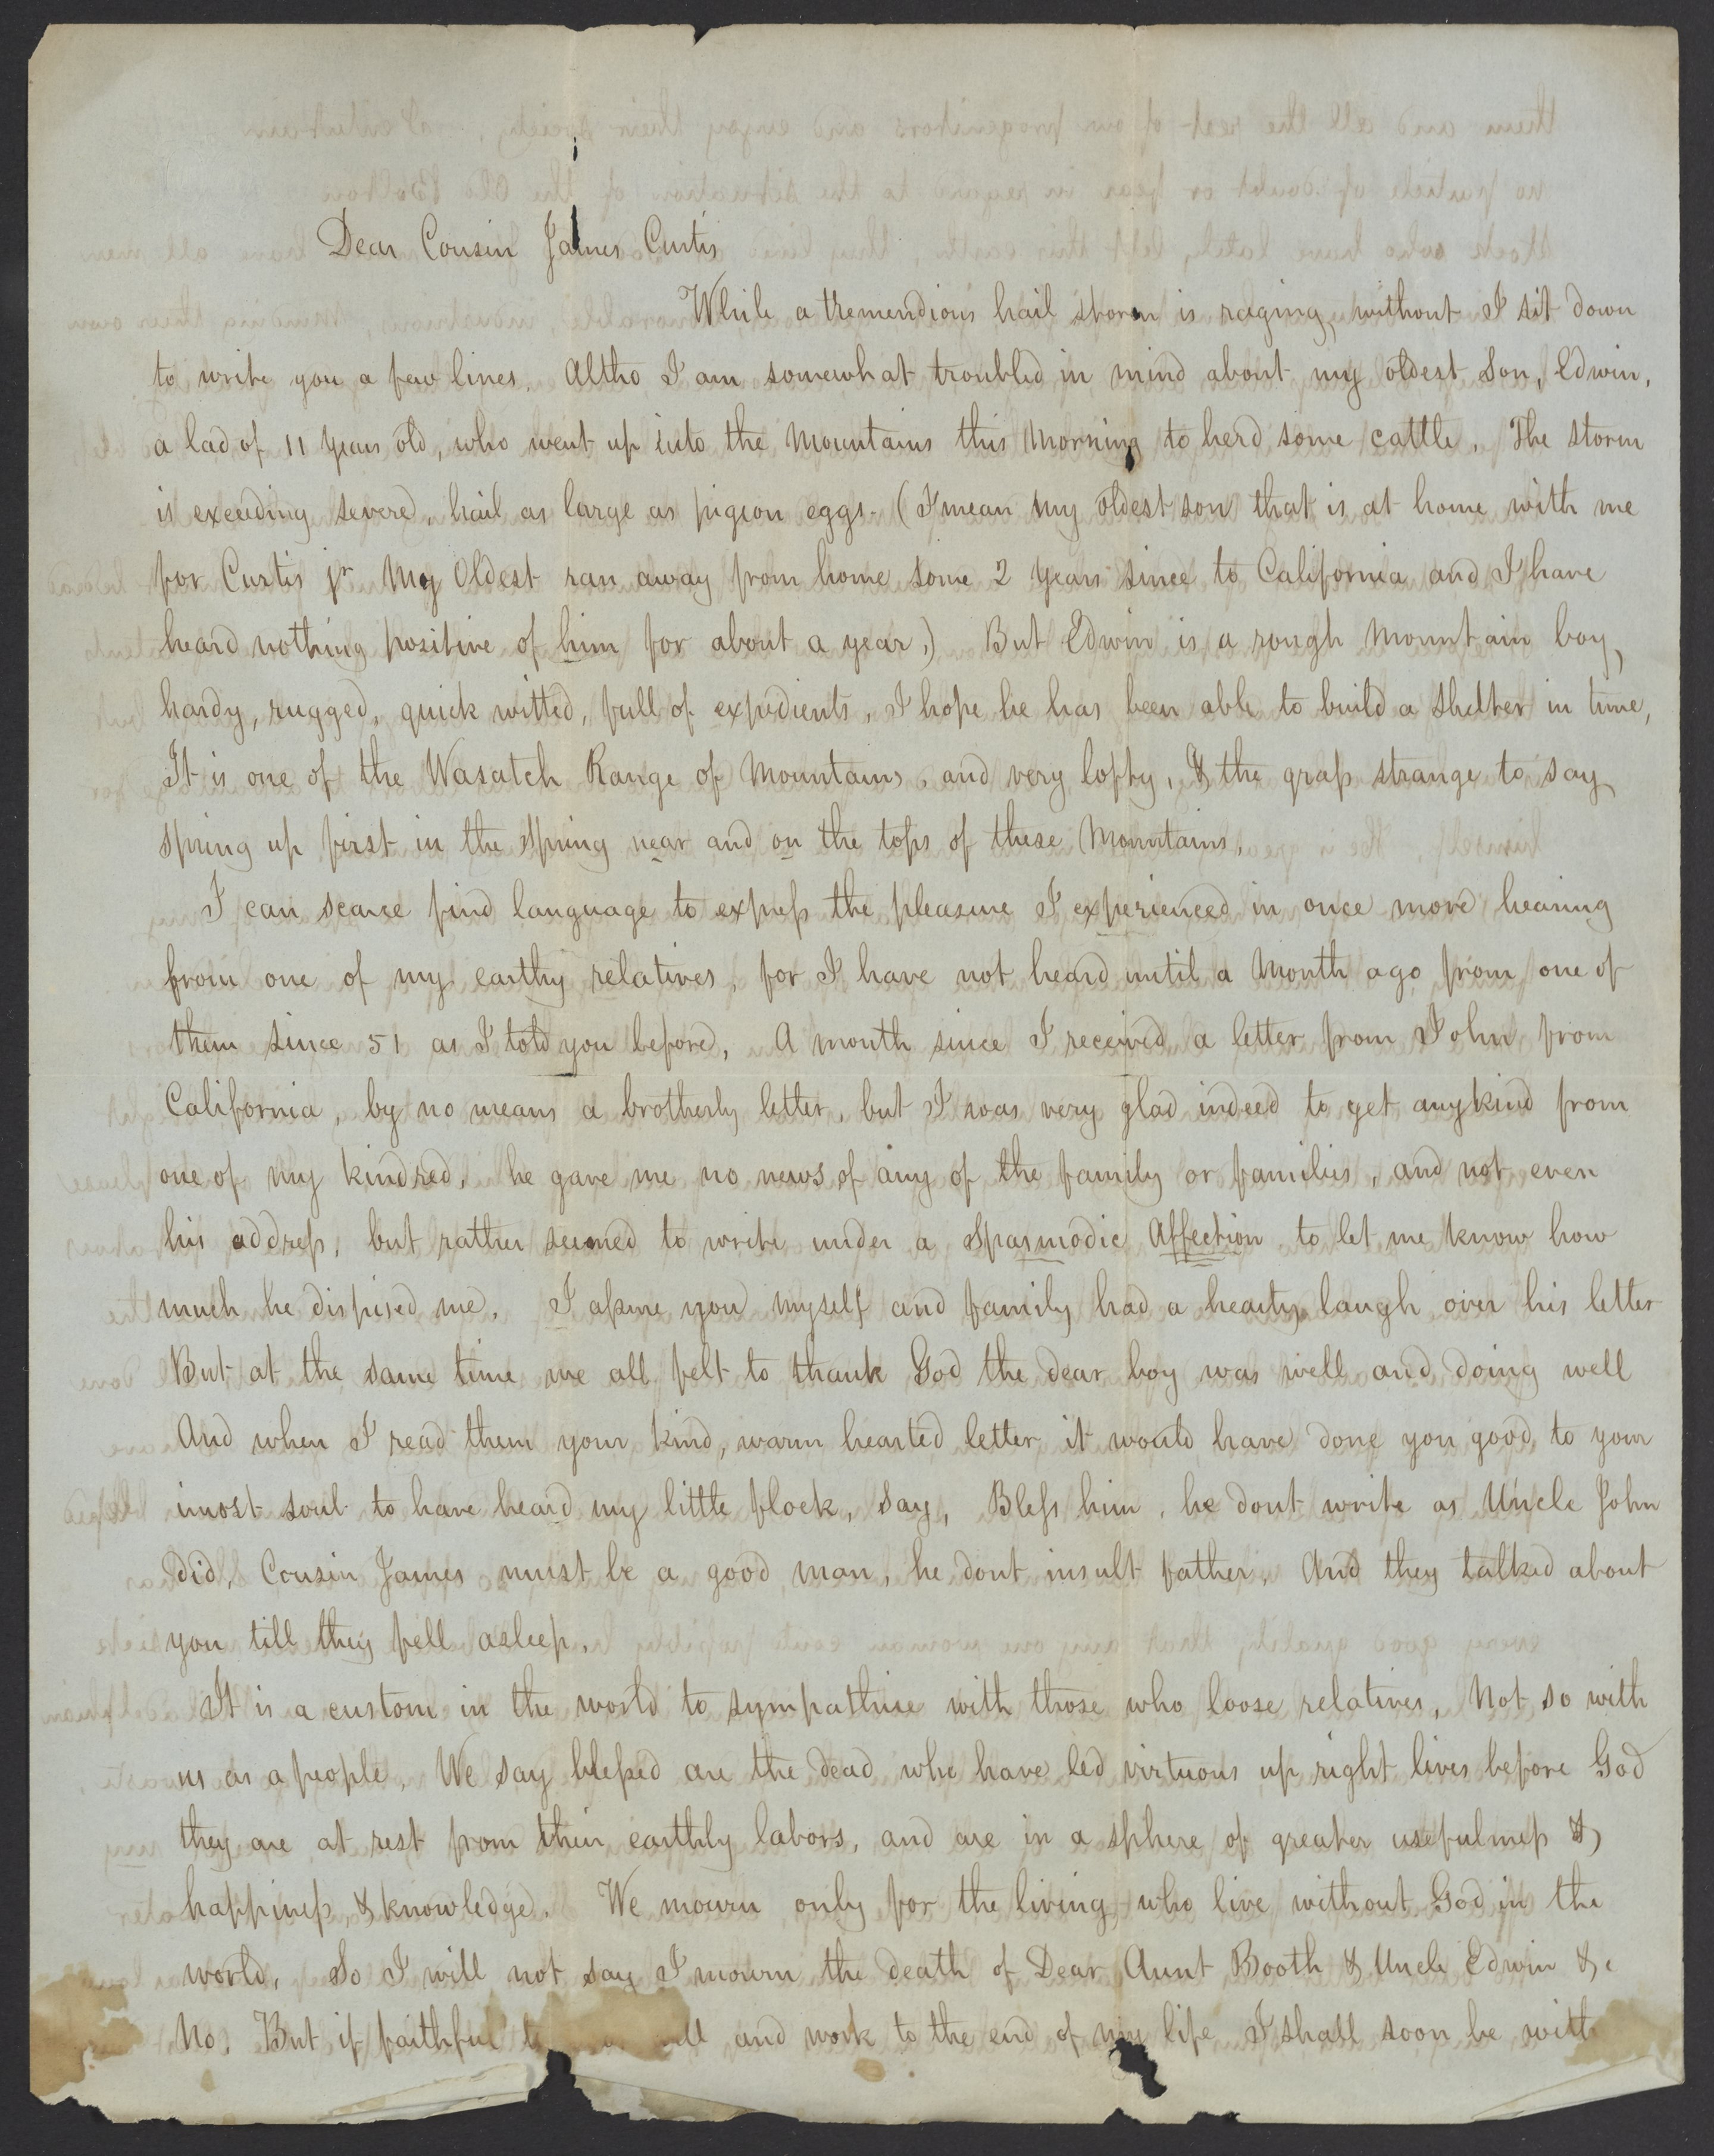 Dear Cousin James Curtis
While a tremendious hail storm is raging without I sit down
to write you a few lines. Altho I am somewhat troubled in mind about my oldest Son, Edwin,
a lad of 11 years old, who went up into the Mountains this Morning to herd some cattle. The storm
is exceeding severe, hail as large as pigeon eggs. (I mean my oldest son that is at home with me
for Curtis jr My Oldest ran away from home some 2 years since to California and I have
heard nothing positive of him for about a year.) But Edwin is a rough Mountain boy,
hardy, rugged, quick witted, full of expedients, I hope he has been able to build a shelter in time,
It is one of the Wasatch Range of Mountains, and very lofty, & the grass strange to say
spring up first in the spring near and on the tops of these Mountains.
I can scarce find language to express the pleasure I experienced in once more hearing
from one of my earthy relatives, for I have not heard until a Month ago from one of
them since 51 as I told you before, A month since I received a letter from John from
California, by no means a brotherly letter, but I was very glad indeed to get anykind from
one of my kindred, he gave me no news of any of the family or families, and not even
his address, but rather seemed to write under a Spasmodic Affection to let me know how
much he dispised me. I assure you myself and family had a hearty laugh over his letter
But at the same time we all felt to thank God the dear boy was well and doing well
And when I read them your kind, warm hearted letter it would have done you good to your
imost soul to have heard my little flock, say, Bless him, he dont write as Uncle John
did, Cousin James must be a good man, he dont insult father. And they talked about
you till they fell asleep.
It is a custom in the world to sympathise with those who loose relatives, Not so with
us as a people, We say blessed are the dead who have led virtuous up right lives before God
they are at rest from their earthly labors, and are in a sphere of greater usefulness &
happiness, & knowledge. We mourn only for the living who live without God in the
world, So I will not say I mourn the death of Dear Aunt Booth & Uncle Edwin &c
No, But if faithful and work to the end of my life I shall soon be with